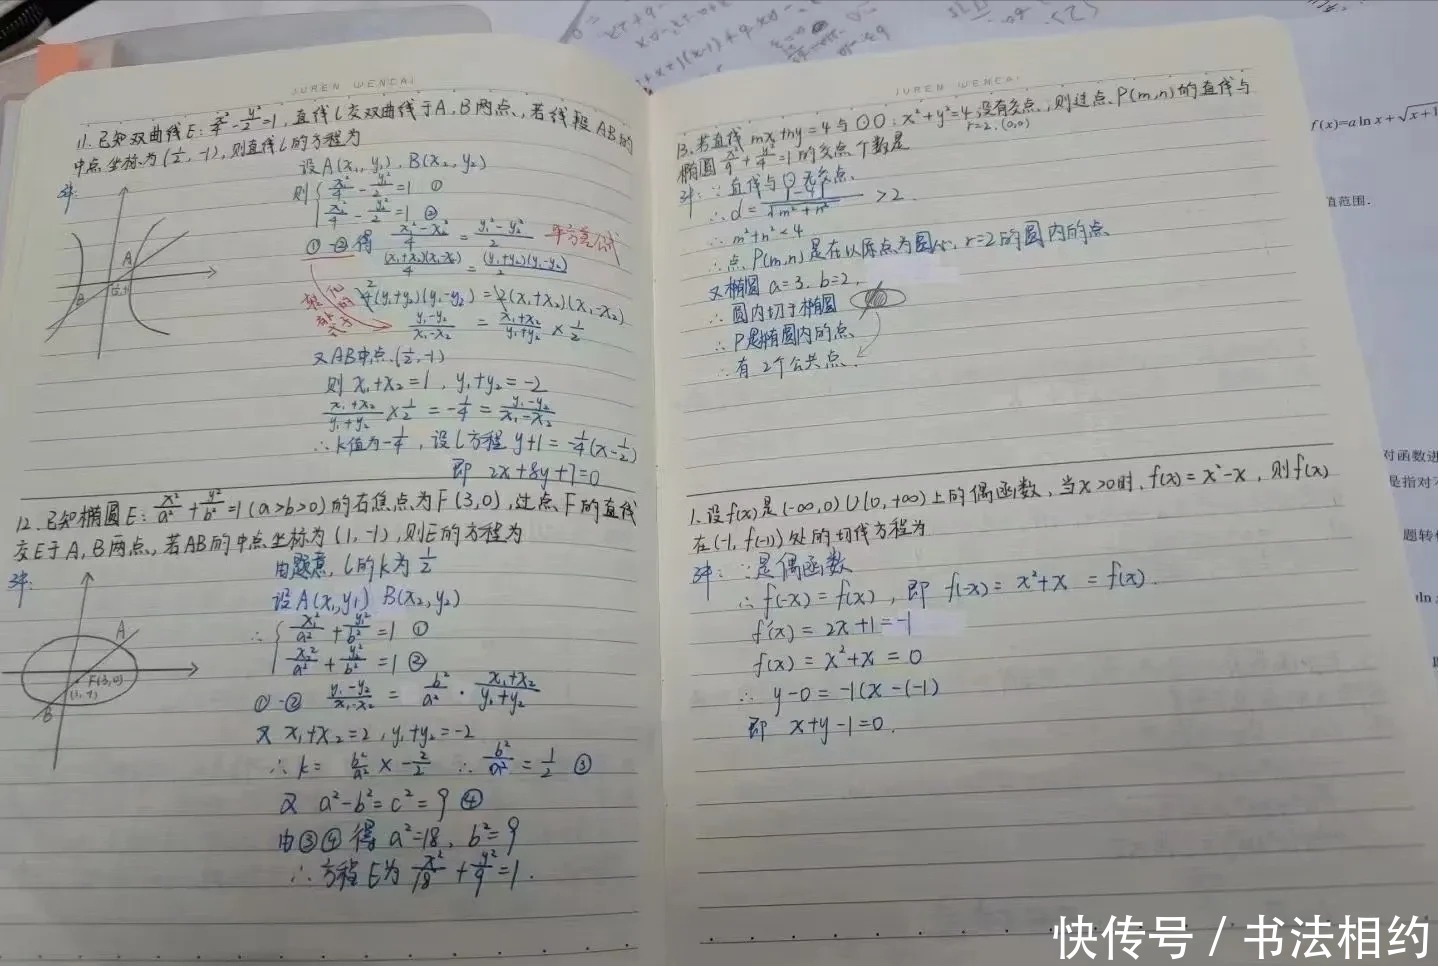 JUREN WENCAI
11.已知双曲线E: x²/4 - y²/2 =1,直线l交双曲线于A、B两点、若线段AB的
中点坐标为(1/2,-1),则直线l的方程为
解:
设A(x₁,y₁)、B(x₂,y₂)
则{ x₁²/4 - y₁²/2 =1 ①
x₂²/4 - y₂²/2 =1 ②
①-②得 (x₁²-x₂²)/4 = (y₁²-y₂²)/2 平方差公式
(x₁+x₂)(x₁-x₂)/4 = (y₁+y₂)(y₁-y₂)/2
4(y₁+y₂)(y₁-y₂)=2(x₁+x₂)(x₁-x₂)
(y₁-y₂)/(x₁-x₂) = (x₁+x₂)/(y₁+y₂) × 1/2
又AB中点(1/2,-1)
则 x₁+x₂=1, y₁+y₂=-2
(x₁+x₂)/(y₁+y₂) × 1/2 = -1/4 = (y₁-y₂)/(x₁-x₂)
∴k值为-1/4,设l方程 y+1=-1/4(x-1/2)
即 2x+8y+7=0
A
B
12.已知椭圆E: x²/a² + y²/b² =1(a>b>0)的右焦点为F(3,0),过点F的直线
交E于A、B两点,若AB的中点坐标为(1,-1),则E的方程为
解:
由题意,l的k为1/2
设A(x₁,y₁) B(x₂,y₂)
∴{ x₁²/a² + y₁²/b² =1 ①
x₂²/a² + y₂²/b² =1 ②
①-② (y₁-y₂)/(x₁-x₂) = b²/a² · (x₁+x₂)/(y₁+y₂)
又 x₁+x₂=2,y₁+y₂=-2
∴k= b²/a² × -2/2 ∴ b²/a² = 1/2 ③
又 a²-b²=c²=9 ④
由③④得 a²=18、b²=9
∴方程E为 x²/18 + y²/9 =1.
A
F(3,0)
(1,-1)
B
JUREN WENCAI
13.若直线 mx+ny=4与⊙O:x²+y²=4没有交点,则过点P(m,n)的直线与
r=2.(0,0)
椭圆 x²/9 + y²/4 =1的交点个数是
解:∵直线与⊙无交点、
∴d= |-4|/√(m²+n²) >2.
∴m²+n²<4
∴点P(m,n)是在以原点为圆心,r=2的圆内的点
又椭圆 a=3、b=2,
∴圆内切于椭圆
∴P是椭圆内的点
∴有2个公共点.
1.设f(x)是(-∞,0)∪(0,+∞)上的偶函数,当x>0时,f(x)=x²-x,则f(x)
在(-1,f(-1))处的切线方程为
解:∵是偶函数
∴f(-x)=f(x),即 f(-x)=x²+x =f(x).
f'(x)=2x+1=-1
f(x)=x²+x=0
∴y-0=-1(x-(-1)
即 x+y-1=0.
f(x)=a ln x+√x+1
值范围.
对函数进
是指对
题转化
快传号 / 书法相约